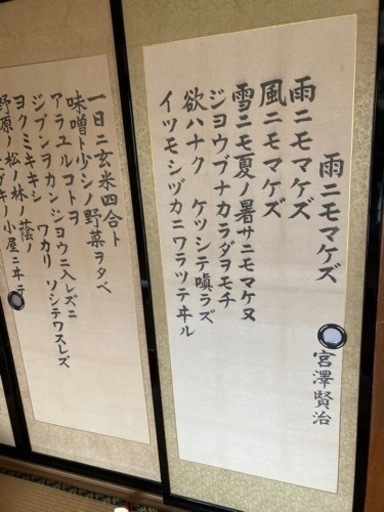 雨ニモマケズ
宮澤賢治
雨ニモマケズ
風ニモマケズ
雪ニモ夏ノ暑サニモマケヌ
ジヨウブナカラダヲモチ
欲ハナク ケツシテ嗔ラズ
イツモシヅカニワラツテヰル
一日ニ玄米四合ト
味噌ト少シノ野菜ヲタベ
アラユルコトヲ
ジブンヲカンジヨウニ入レズニ
ヨクミキキシ ワカリ ソシテワスレズ
野原ノ松ノ林ノ蔭ノ
小屋ニヰテ